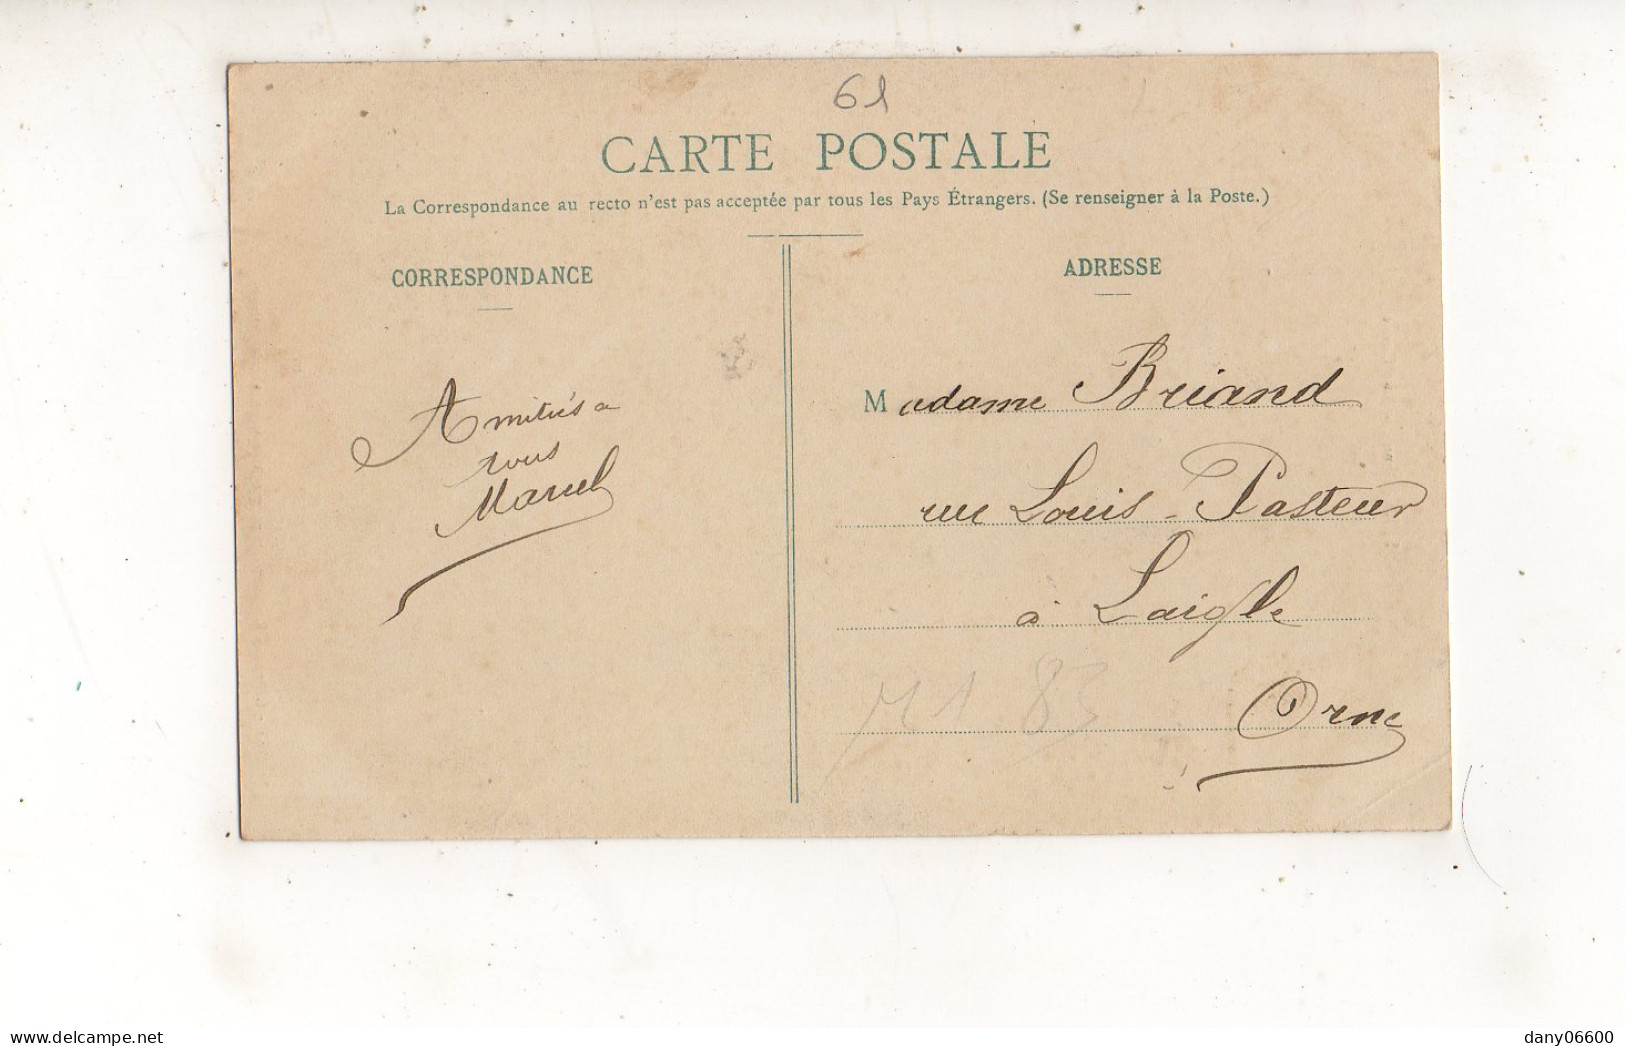 61
CARTE POSTALE
La Correspondance au recto n'est pas acceptée par tous les Pays Étrangers. (Se renseigner à la Poste.)
CORRESPONDANCE
Amitiés a
tous
Marcel
ADRESSE
Madame Briand
rue Louis-Pasteur
à Laigle
Orne
83
www.delcampe.net
dany06600